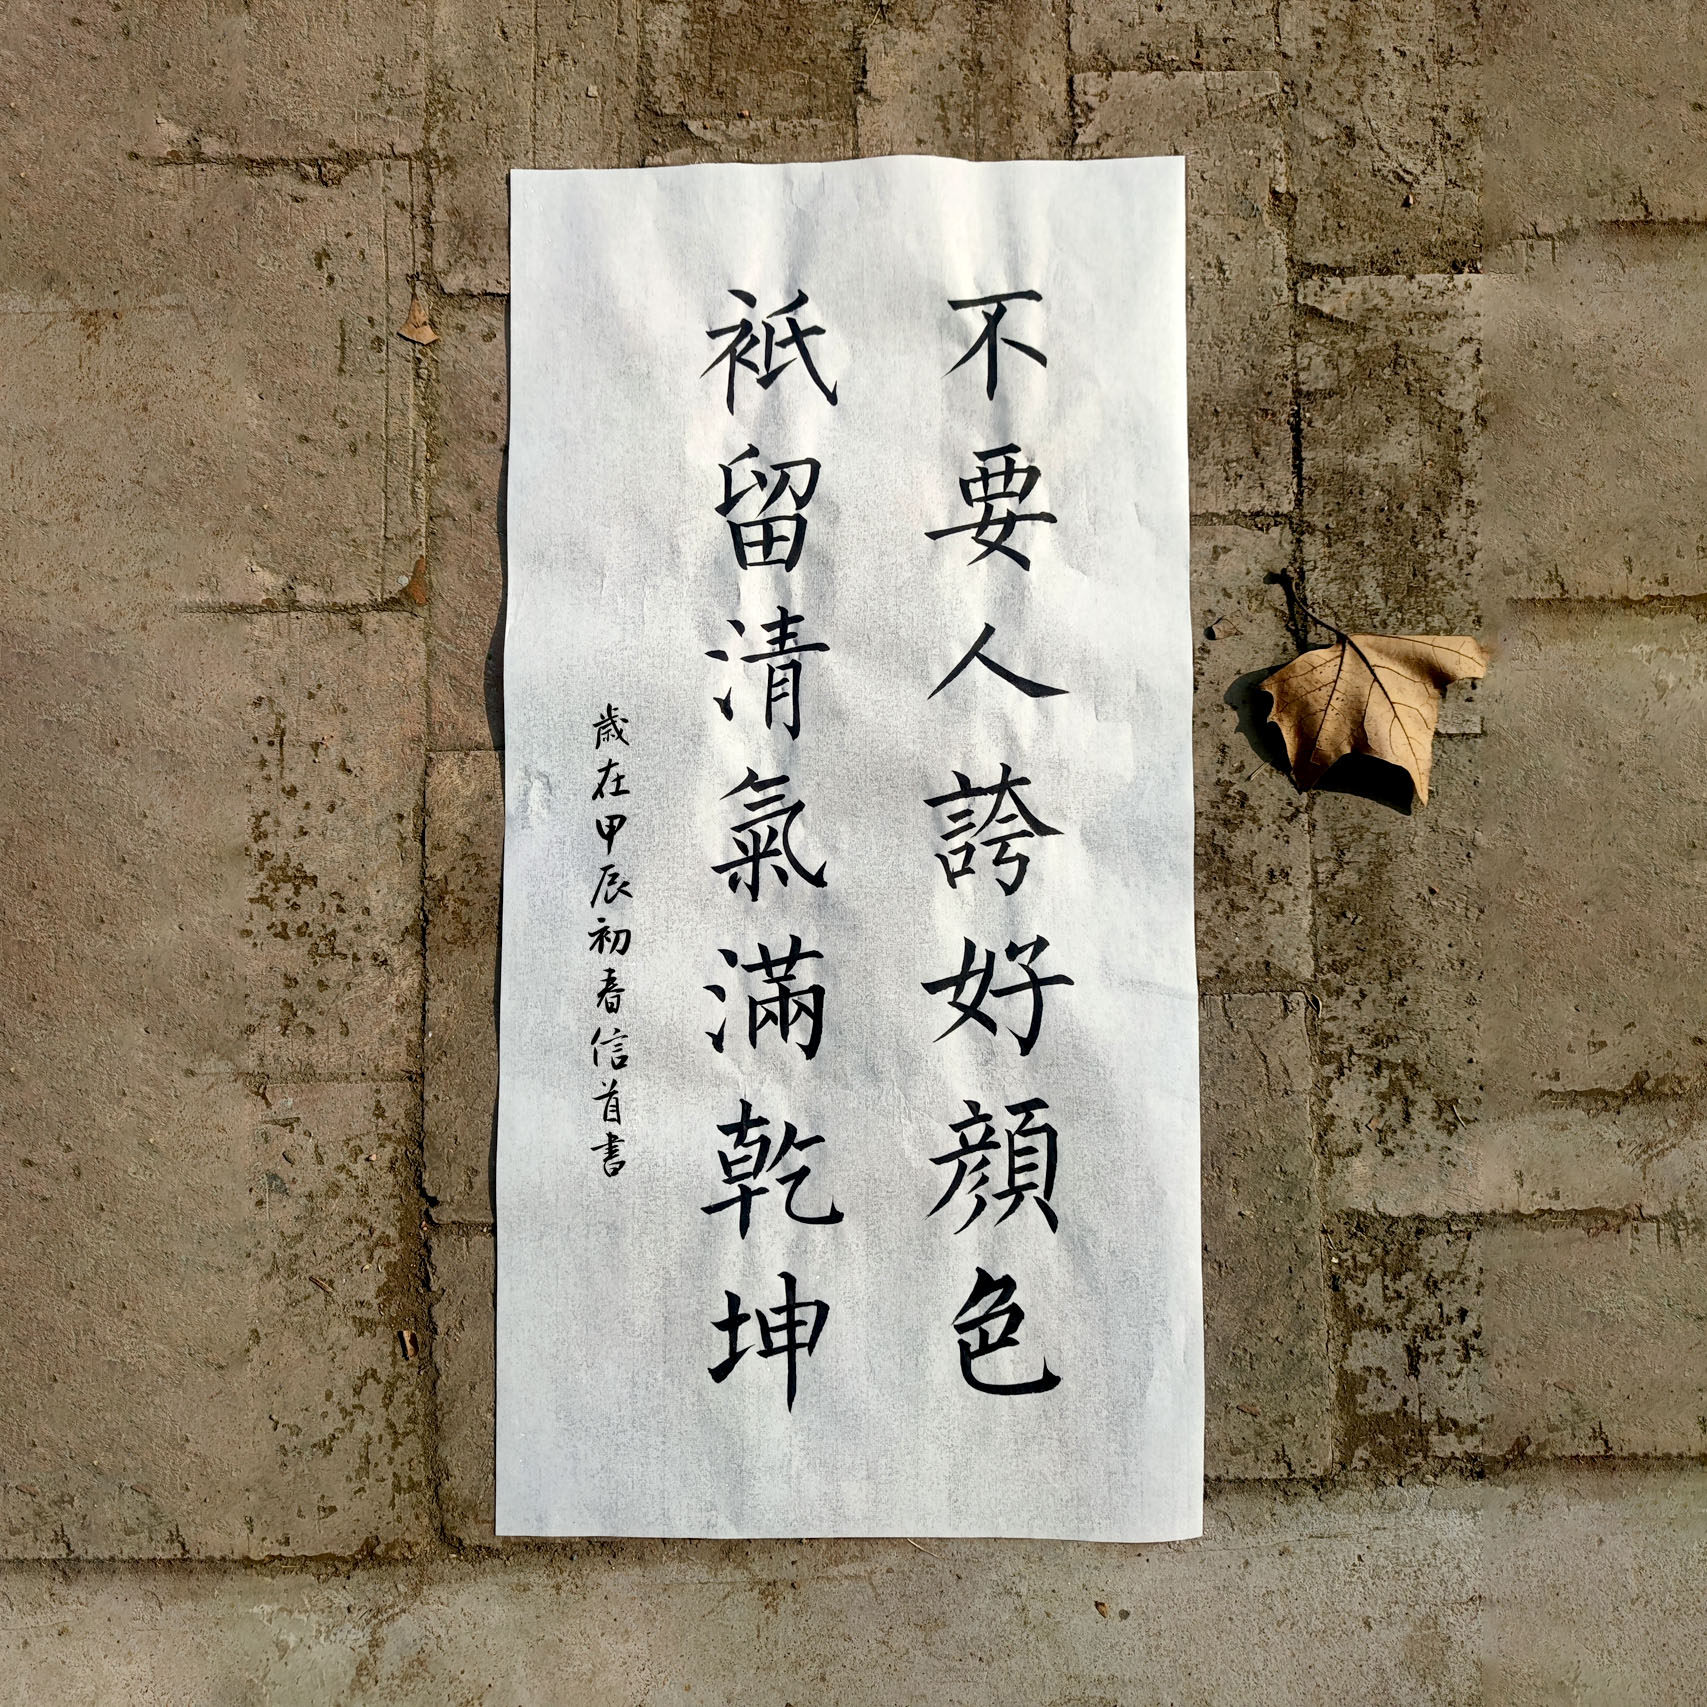 不要人誇好顔色
衹留清氣滿乾坤
歲在甲辰初春信首書